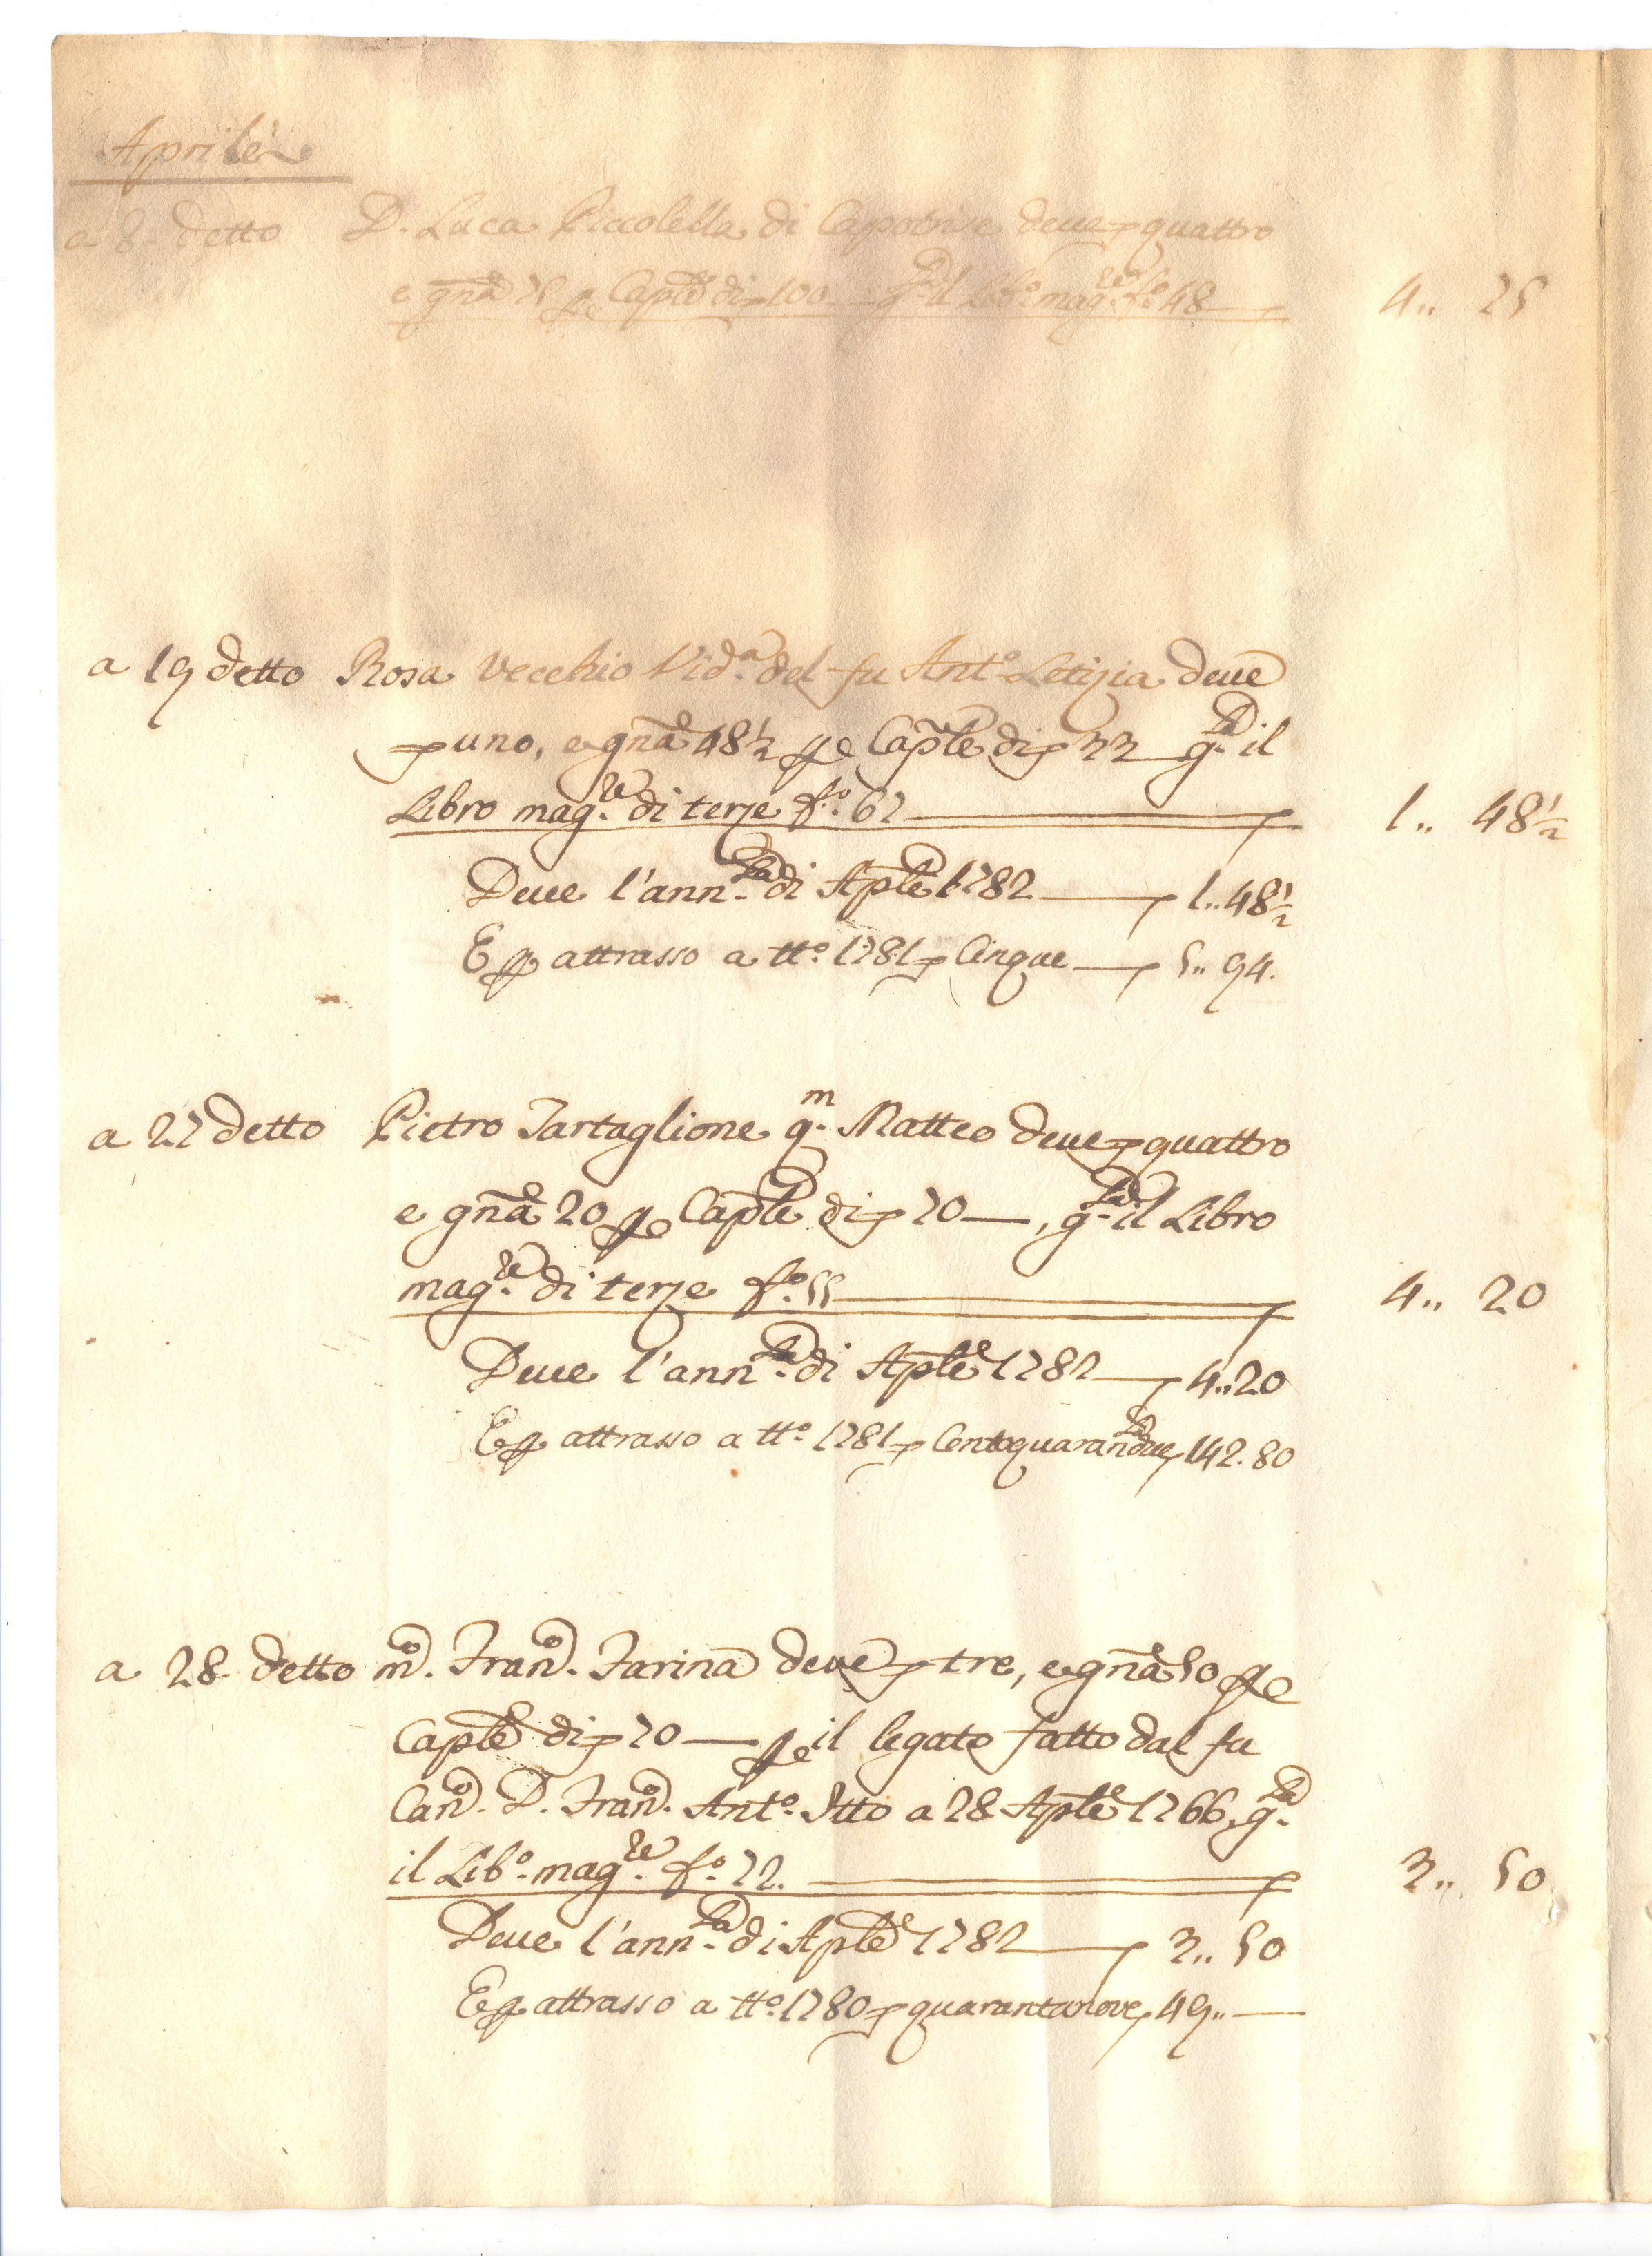 Aprile
a 8. detto D. Luca Piccolella di Capotrise deve quattro
e gnã 25 pe Caplē di 100 — qª il Libº. magre. fº 48 — 4.. 25
a 19 detto Rosa Vecchio Vidª. del fu Antº. Letizia deve
uno, e gnã 48½ pe Caplē di 33 — qª. il
Libro magre. di terze fº. 67 — 1.. 48½
Deve l'annta. di Aplē 1782 — 1.. 48½
E p attrasso a ttº. 1781 Cinque — 5.. 94.
a 27 detto Pietro Tartaglione qm. Matteo deve quattro
e gnã 20 pe Caplē di 70 —, qta. il Libro
magre. di terze fº. 55 — 4.. 20
Deve l'annta. di Aplē 1782 — 4.. 20
E p attrasso a ttº. 1781 Centoquarantadue 142. 80
a 28 detto mº. Franº. Farina deve tre, e gnã 50 pe
Caplē di 70 — pe il legato fatto dal fu
Canº. D. Franº. Antº. Itto a 28 Aplē 1766, qta.
il Libº. magre. fº. 72. — 3.. 50
Deve l'annta. di Aplē 1782 — 3.. 50
E p attrasso a ttº. 1780 quarantanove 49.. —